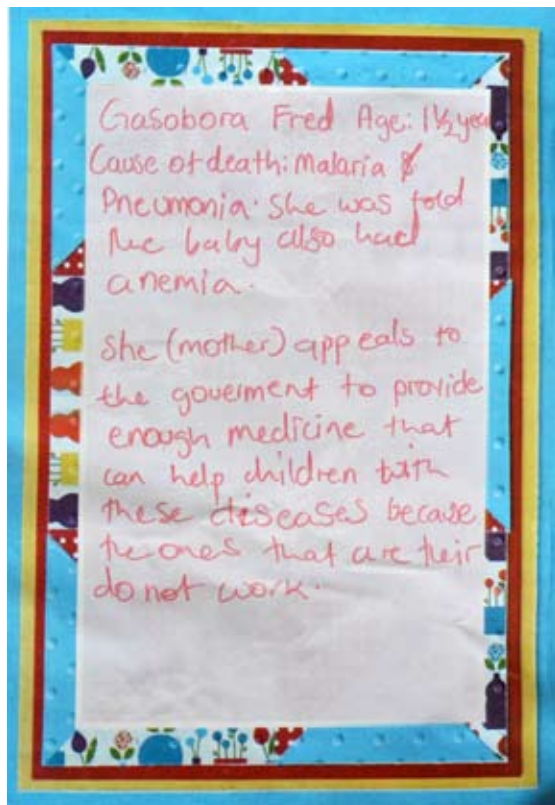 Gasobora Fred Age: 1½ year
Cause of death: Malaria &
Pneumonia. She was told
the baby also had
anemia.
She (mother) appeals to
the goverment to provide
enough medicine that
can help children with
these diseases because
the ones that are their
do not work.